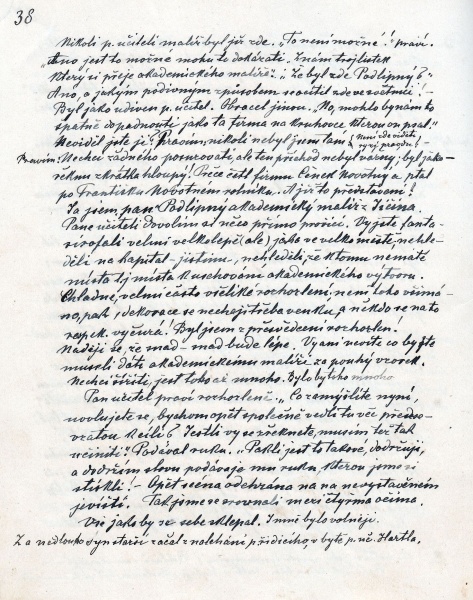 38
Nikoli p. učiteli malíř byl již zde. „To není možné!" praví.
„Ano jest to možné mohu to dokázati. Znám trojlístek
který si přeje akademického malíře". „Že byl zde Podlipný?"
Ano, a jakým podivným způsobem se octil zde ve světnici! –
Byl jako udiven p. učitel. Obracel jinou. „No, mohlo by nám to
špatně dopadnouti jako ta firma na kruhovce kterou on psal."
Neviděl jste ji? Pravím, nikoli nebyl jsem tam.
Pravím: Nechci žádného posuzovati, ale ten příchod nebyl varný, byl jako
řeknu zkrátka hloupý! Přece četl firmu Čeněk Novotný a ptal
po Františku Novotném rolníku. A již to představení!
Ja jsem, pan Podlipný akademický malíř z Jičína.
Pane učiteli dovolím si něco přímo prořici. Vy jste fanta-
sírovali velmi velkolepě (ale) jako ve velkoměstě, nehle-
děli na kapital – jistinu, nehleděli, že k tomu nemáte
místa tj místa k uschování akademického výtvoru.
Chladne, velmi často všeliké rozhorlení, není toho všímá-
no, pak, dekorace se nechají třeba venku, a někdo se na to
resp. k. vyčurá! Byl jsem z přesvědčení rozhorlen!
Naději se, že snad – snad bude lépe. Vy ani nevíte co byste
museli dáti akademickému malíři za pouhý vzorek.
Nechci stříti, jest toho až mnoho. Bylo by toho mnoho
Pan učitel praví rozhorleně: „Co zamýšlíte nyní,
uvolujete se, bychom opět společně vedli tu věc předse-
vzatou k cíli? Jestli vy se zřeknete, musím též tak
učiniti!" Podával ruku. „Pakli jest to takové, dodržuji,
a dodržím slovu podávaje mu ruku, kterou jsme si
stiskli. – Opět scéna odehrána na na nevystavěném
jevišti. Tak jsme se srovnali mezi čtyřma očima.
Vše jako by se sebe sklepal. Jinné bylo volněji.
Za nedlouho syn starší začal z naléhání přídícího, v bytě p. uč. Hartla.